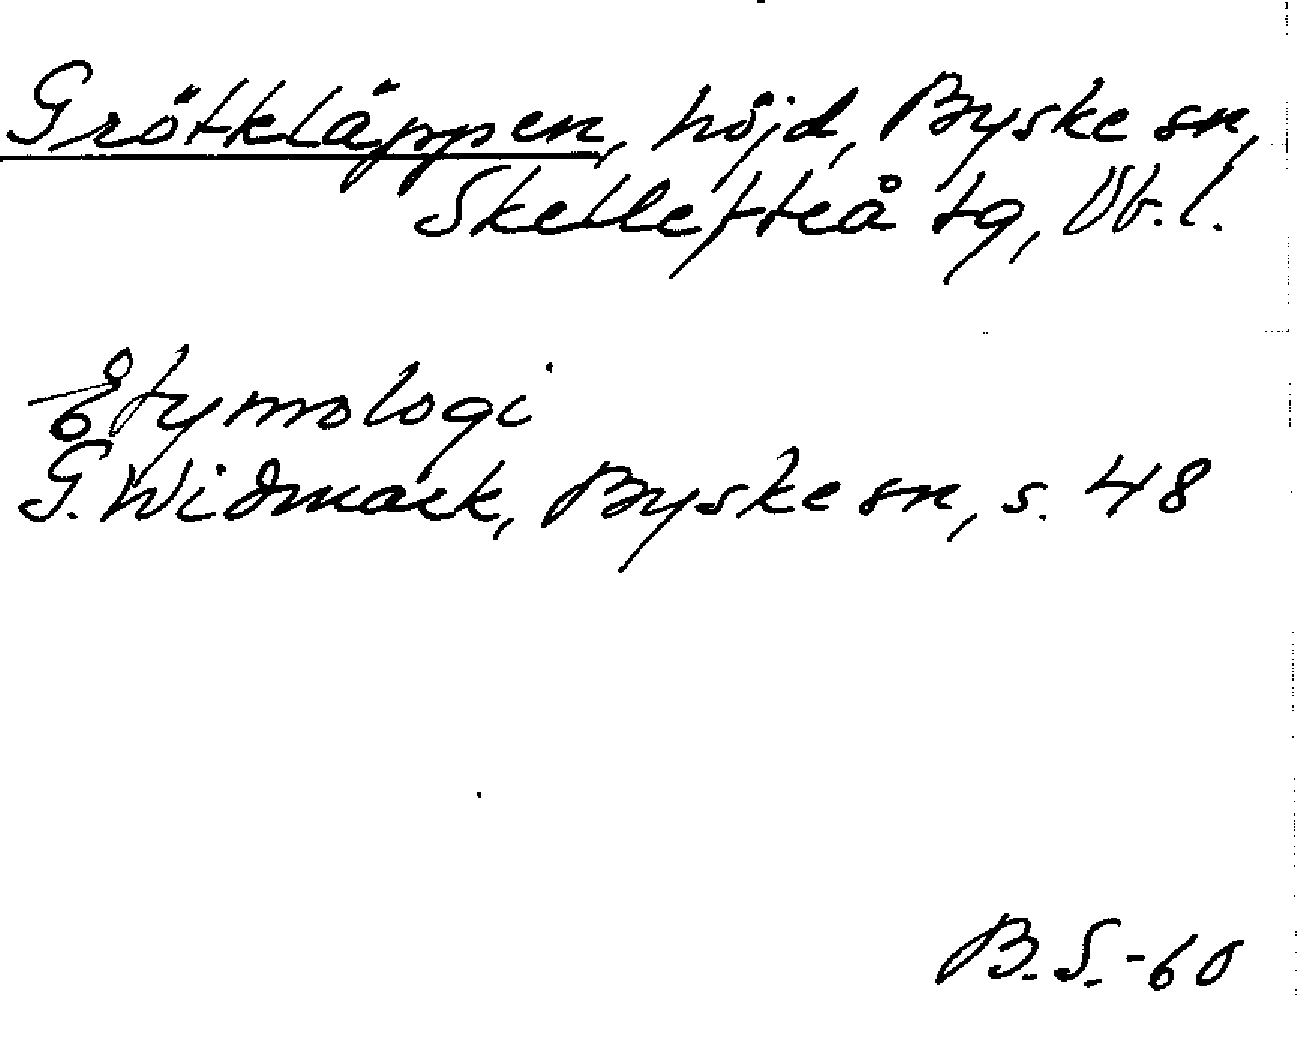 Grötkläppen, höjd, Byske sn,
Skellefteå tg, Vb. l.
Etymologi
G. Widmark, Byske sn, s. 48
B. S. -60